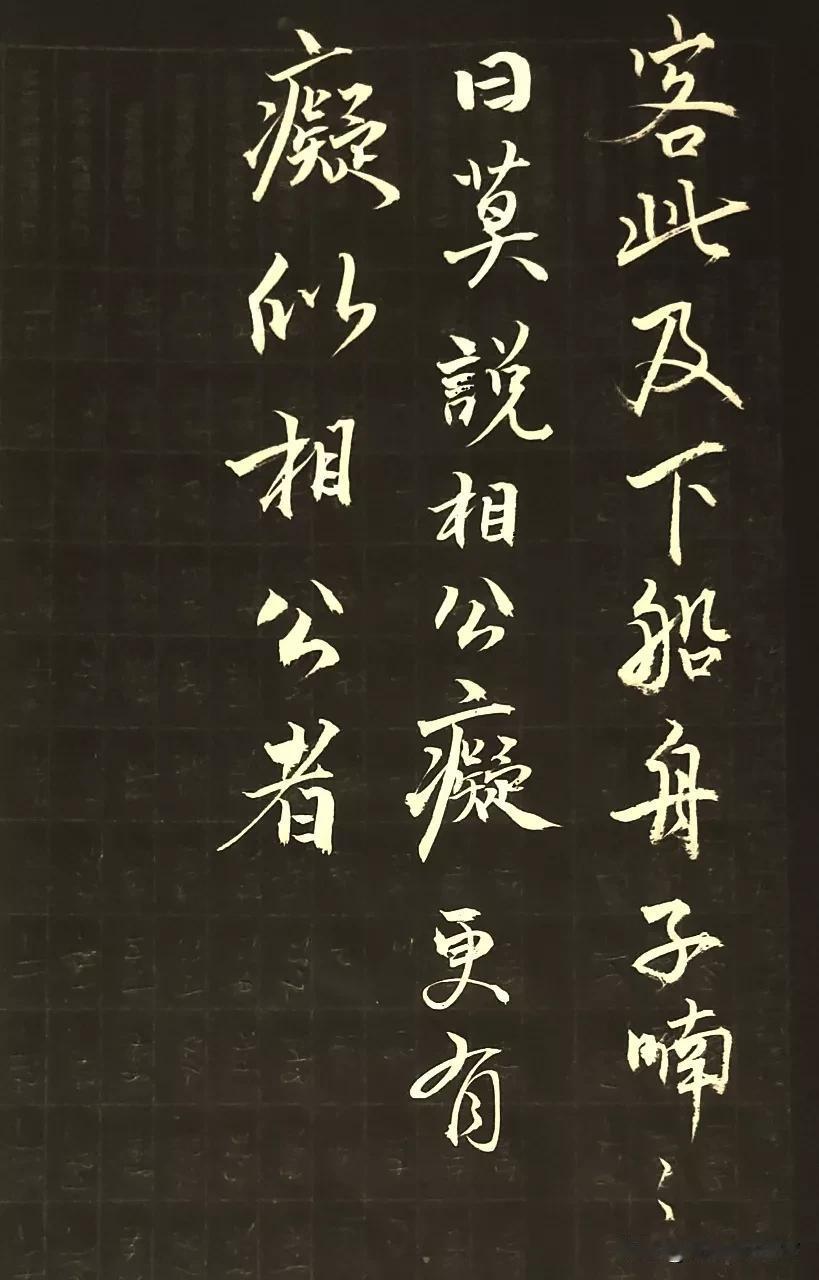 客此及下船舟子喃〻
曰莫説相公癡更有
癡似相公者